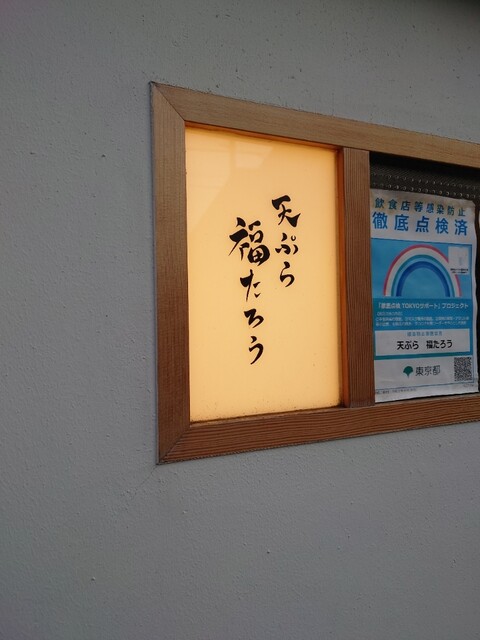 天ぷら
福たろう
飲食店等感染防止
徹底点検済
「徹底点検 TOKYOサポート」プロジェクト
天ぷら 福たろう
東京都